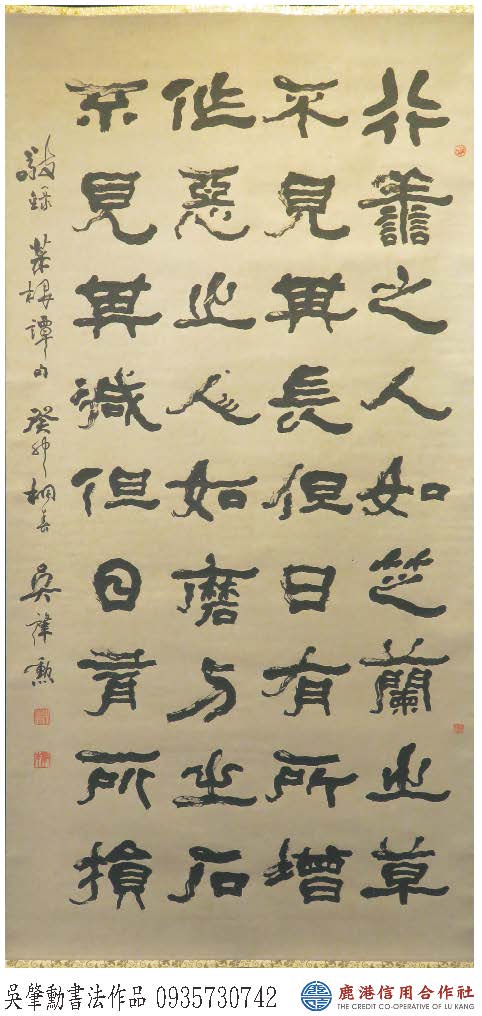 行善之人如芝蘭之草
不見其長但日有所增
作惡之人如磨刀之石
不見其減但日有所損
敬錄 菜根譚句 癸卯桐春 吳肇勳
吳肇勳書法作品 0935730742
鹿港信用合作社
THE CREDIT CO-OPERATIVE OF LU KANG